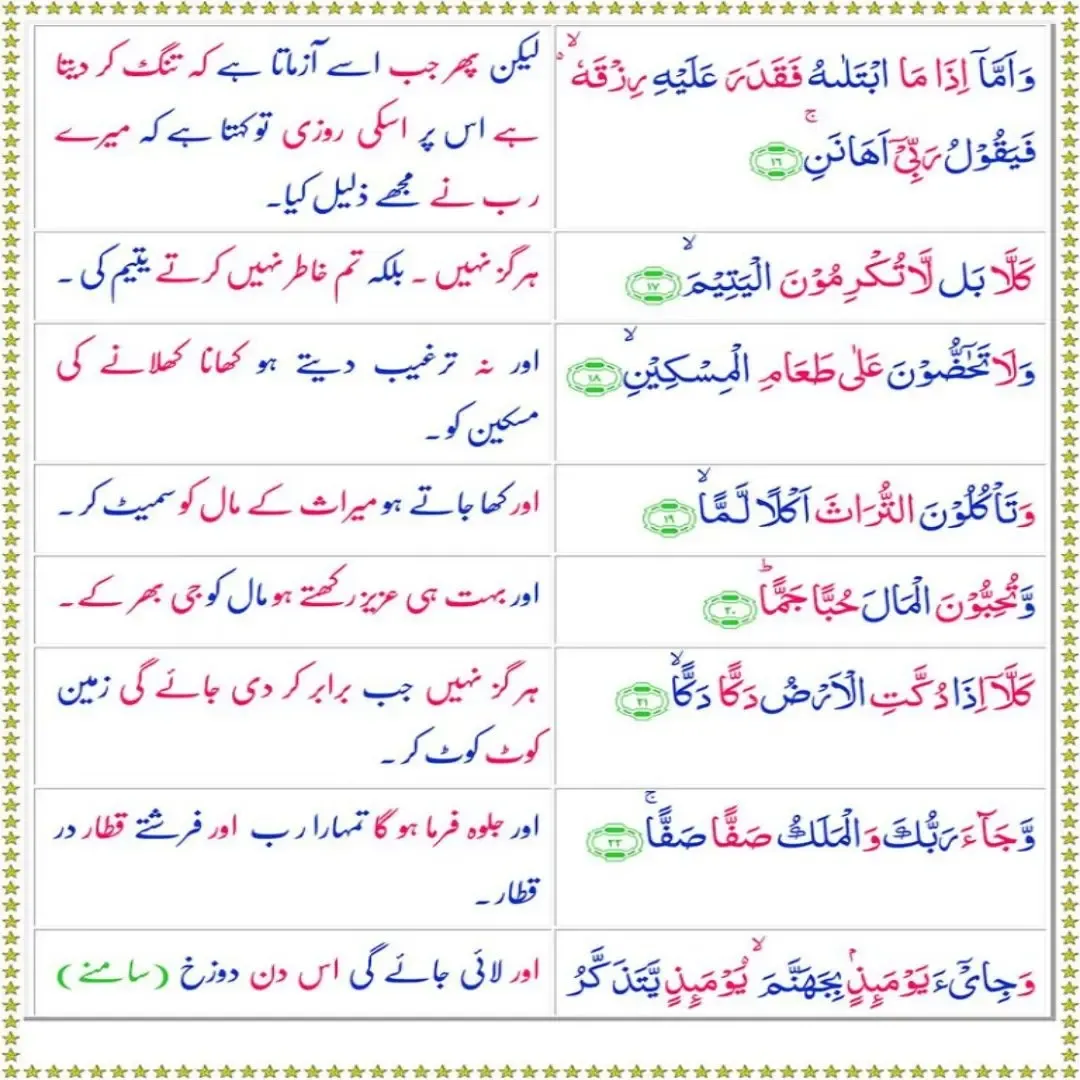 وَاَمَّاۤ اِذَا مَا ابْتَلٰىهُ فَقَدَرَ عَلَیْهِ رِزْقَهٗ ۙ۬
فَیَقُوْلُ رَبِّیْۤ اَهَانَنِ ۚ ۱۶
لیکن پھر جب اسے آزماتا ہے کہ تنگ کر دیتا
ہے اس پر اسکی روزی تو کہتا ہے کہ میرے
رب نے مجھے ذلیل کیا۔
كَلَّا بَل لَّا تُكْرِمُوْنَ الْیَتِیْمَ ۙ ۱۷
ہرگز نہیں ۔ بلکہ تم خاطر نہیں کرتے یتیم کی ۔
وَلَا تَحٰٓضُّوْنَ عَلٰی طَعَامِ الْمِسْكِیْنِ ۙ ۱۸
اور نہ ترغیب دیتے ہو کھانا کھلانے کی
مسکین کو ۔
وَتَاْكُلُوْنَ التُّرَاثَ اَكْلًا لَّمًّا ۙ ۱۹
اور کھا جاتے ہو میراث کے مال کو سمیٹ کر ۔
وَّتُحِبُّوْنَ الْمَالَ حُبًّا جَمًّا ؕ ۲۰
اور بہت ہی عزیز رکھتے ہو مال کو جی بھر کے ۔
كَلَّاۤ اِذَا دُكَّتِ الْاَرْضُ دَكًّا دَكًّا ۙ ۲۱
ہرگز نہیں جب برابر کر دی جائے گی زمین
کوٹ کوٹ کر ۔
وَّجَآءَ رَبُّكَ وَالْمَلَكُ صَفًّا صَفًّا ۚ ۲۲
اور جلوہ فرما ہو گا تمہارا رب اور فرشتے قطار در
قطار ۔
وَجِایْٓءَ یَوْمَىِٕذٍۭ بِجَهَنَّمَ ۙ۬ یَوْمَىِٕذٍ یَّتَذَكَّرُ
اور لائی جائے گی اس دن دوزخ (سامنے)